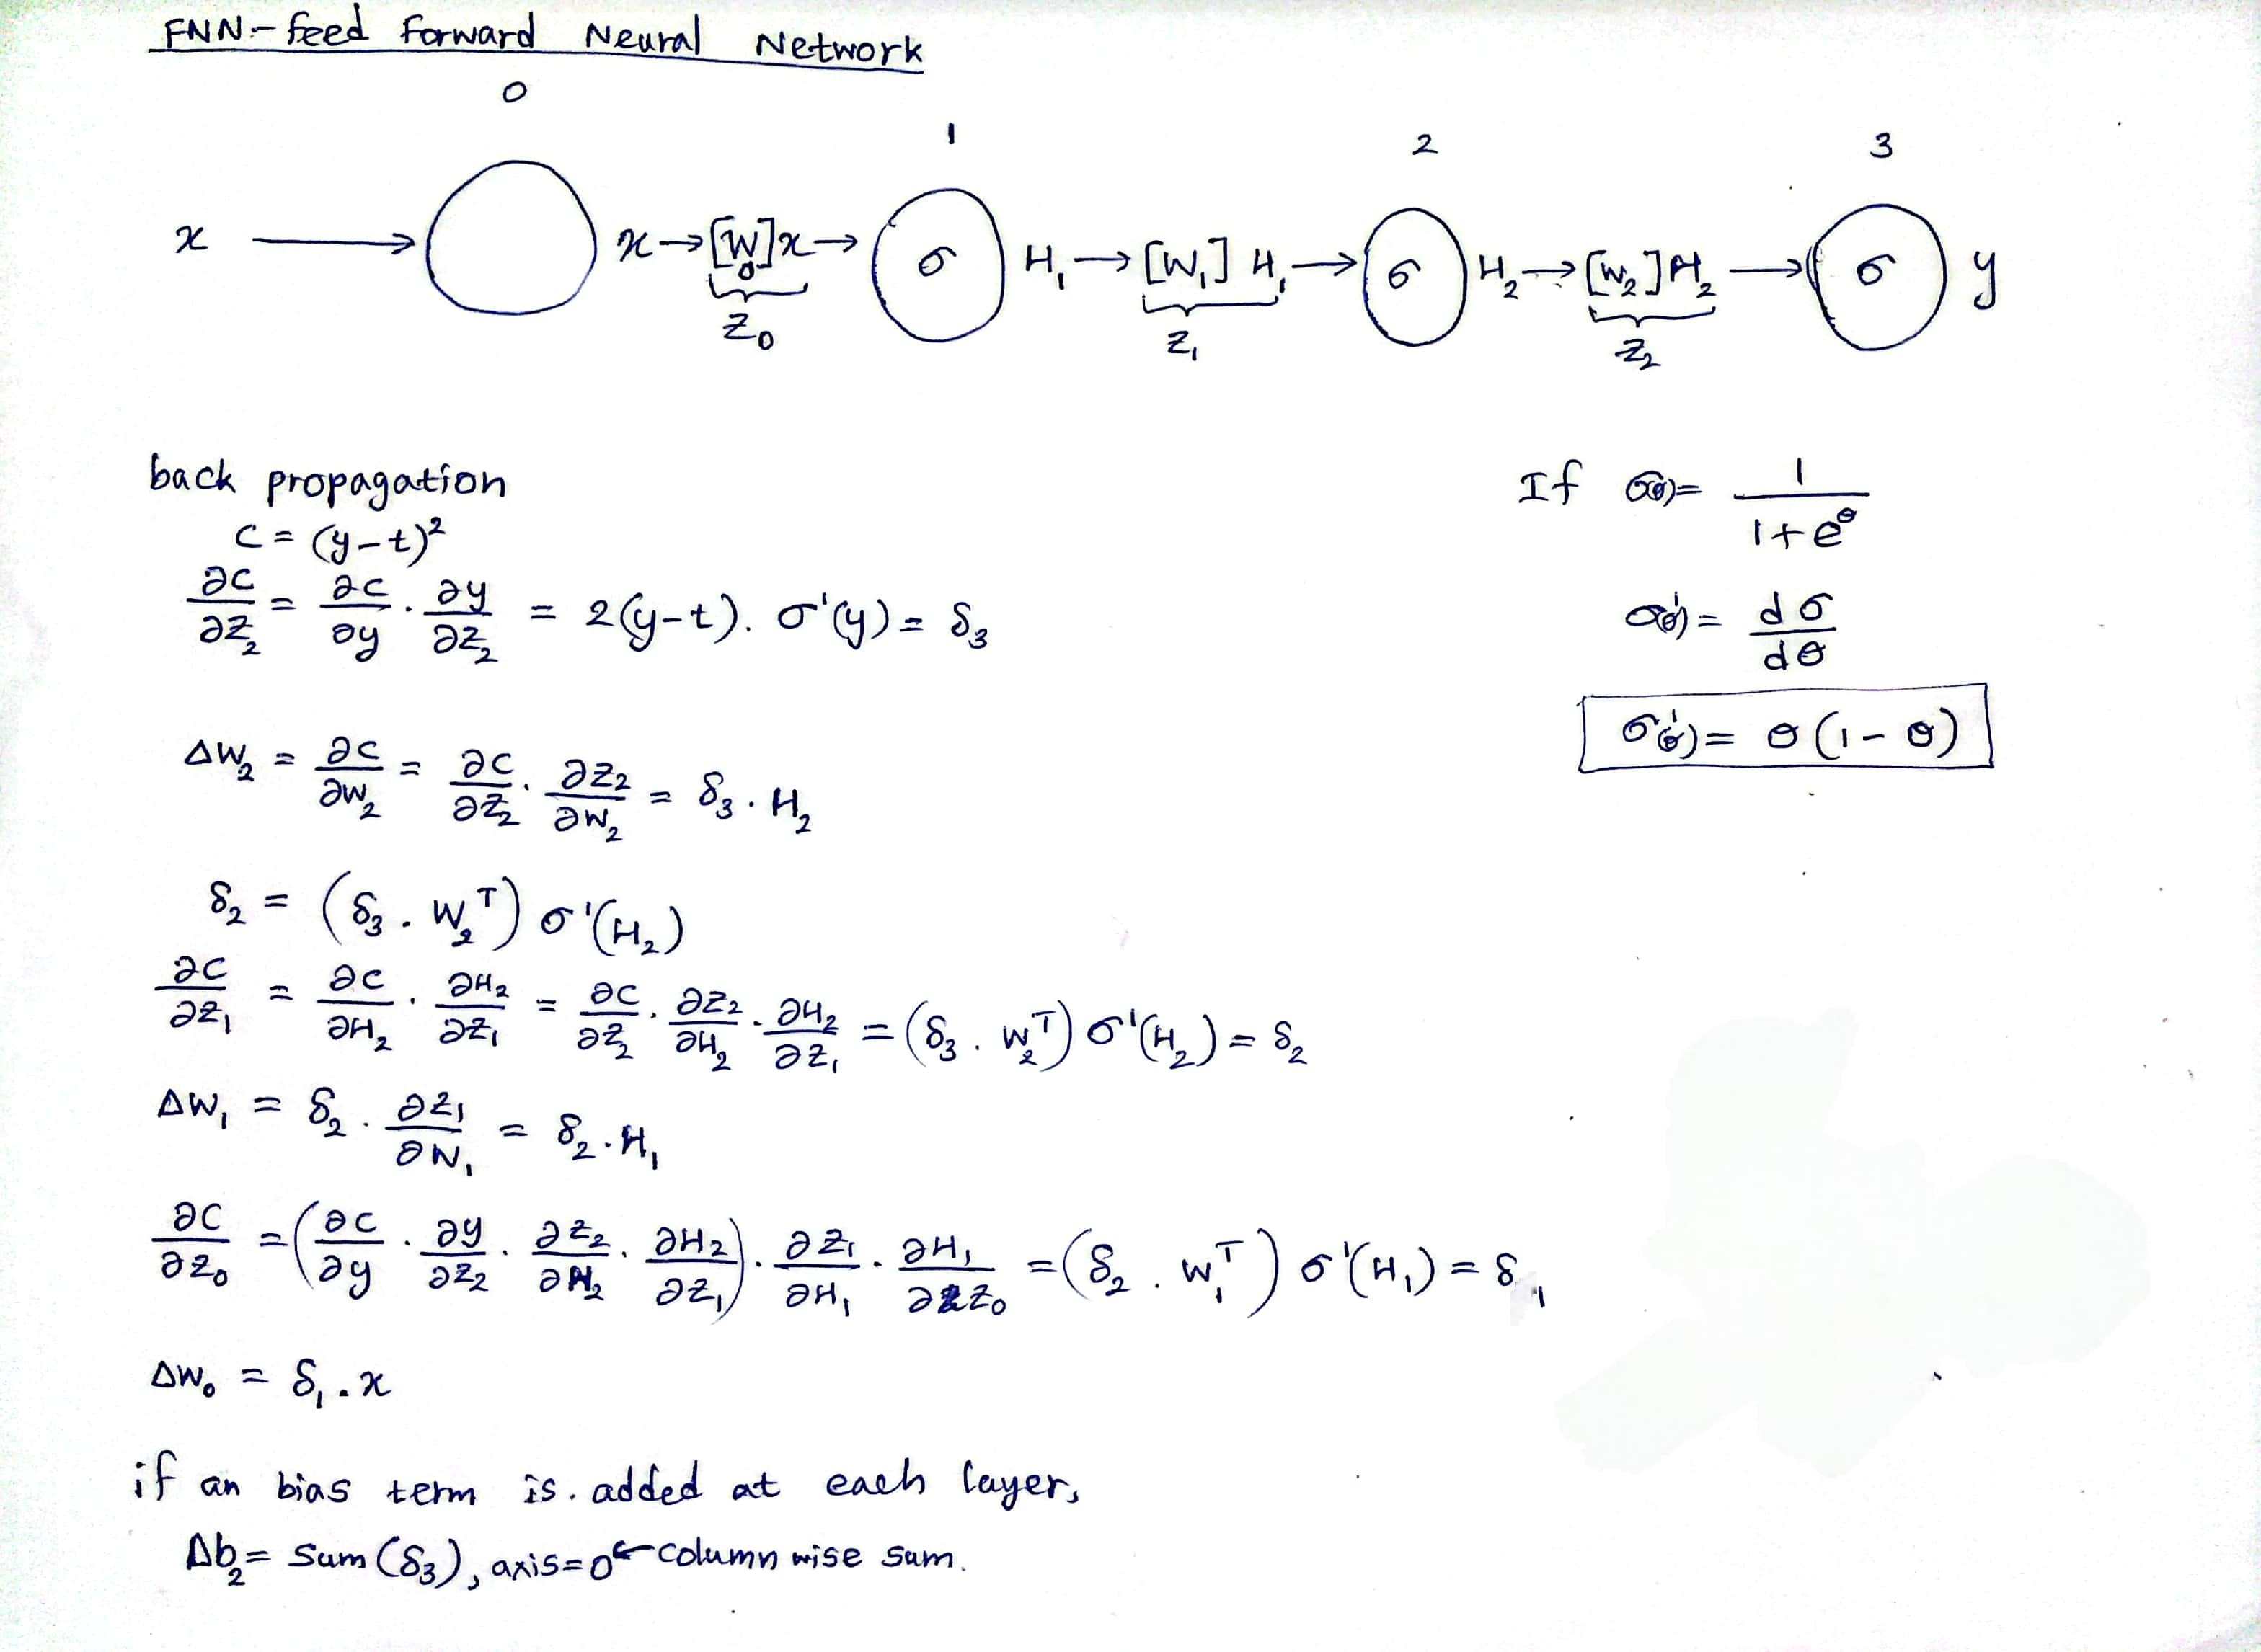 FNN:- feed forward Neural Network
0 1 2 3
x → x → [W₀]x → σ H₁ → [W₁] H₁ → σ H₂ → [W₂]H₂ → σ y
z₀ z₁ z₂
back propagation
If σ(θ) = 1/(1+e^θ)
C = (y-t)²
∂C/∂z₂ = ∂C/∂y · ∂y/∂z₂ = 2(y-t). σ'(y) = δ₃
σ'(θ) = dσ/dθ
σ'(θ) = θ(1-θ)
ΔW₂ = ∂C/∂W₂ = ∂C/∂z₂ · ∂z₂/∂W₂ = δ₃ · H₂
δ₂ = (δ₃ . W₂ᵀ) σ'(H₂)
∂C/∂z₁ = ∂C/∂H₂ · ∂H₂/∂z₁ = ∂C/∂z₂ · ∂z₂/∂H₂ · ∂H₂/∂z₁ = (δ₃ . W₂ᵀ) σ'(H₂) = δ₂
ΔW₁ = δ₂ · ∂z₁/∂W₁ = δ₂ . H₁
∂C/∂z₀ = (∂C/∂y · ∂y/∂z₂ · ∂z₂/∂H₂ · ∂H₂/∂z₁) · ∂z₁/∂H₁ · ∂H₁/∂z₀ = (δ₂ . W₁ᵀ) σ'(H₁) = δ₁
ΔW₀ = δ₁ . x
if an bias term is. added at each layer,
Δb₂ = Sum (δ₃), axis=0 ← column wise sum.